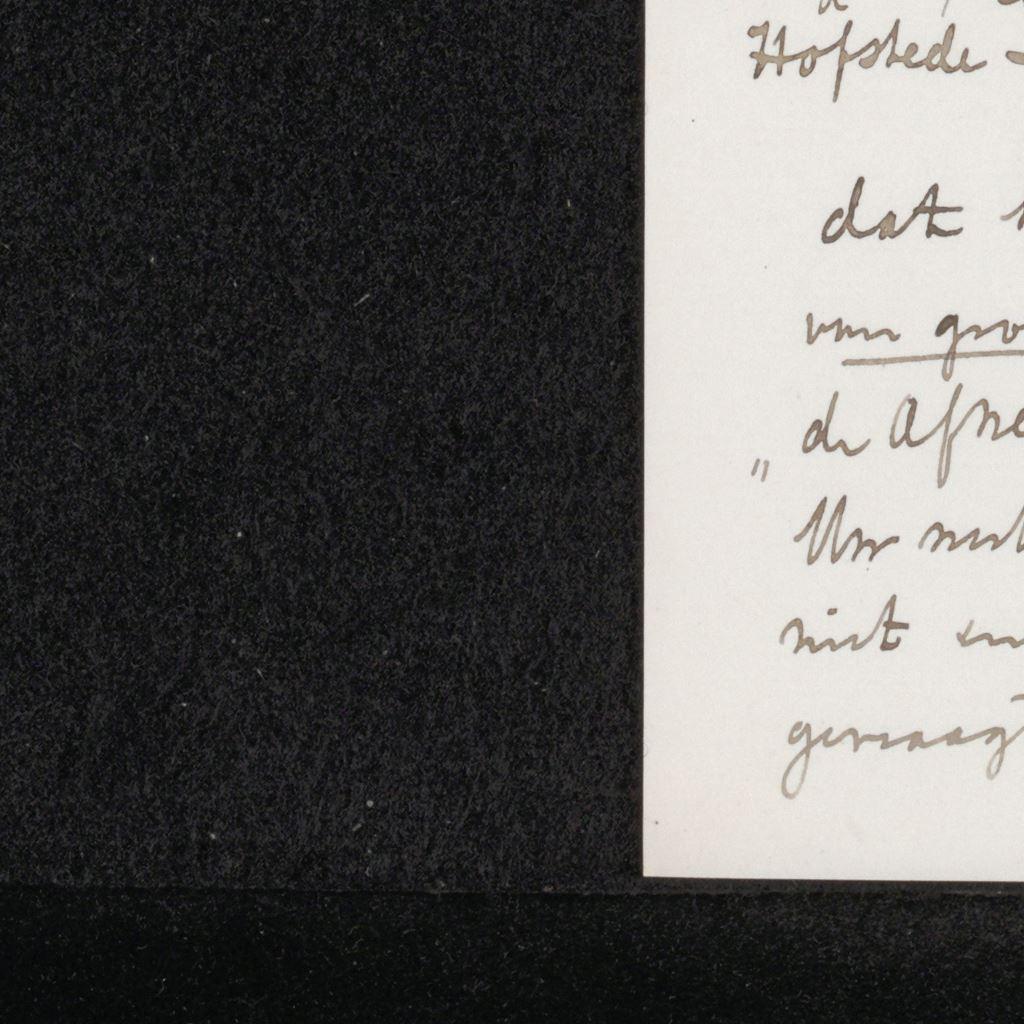 Hofstede
dat
van gro
de Afne
"
Uw
niet
gevraagt